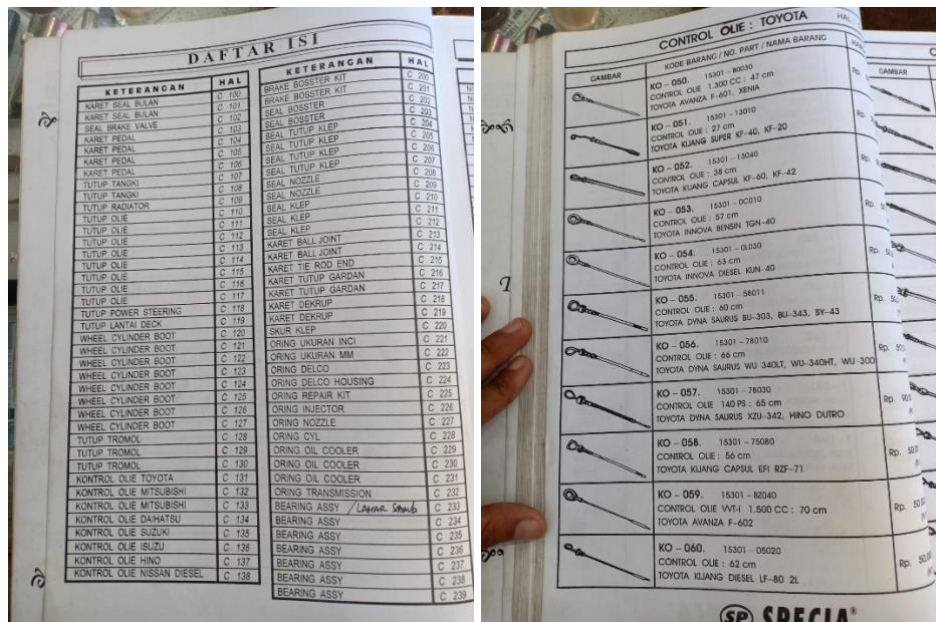 DAFTAR ISI
KETERANGAN HAL
KARET SEAL BULAN C 100
KARET SEAL BULAN C 101
SEAL BRAKE VALVE C 102
KARET PEDAL C 103
KARET PEDAL C 104
KARET PEDAL C 105
KARET PEDAL C 106
TUTUP TANGKI C 107
TUTUP TANGKI C 108
TUTUP RADIATOR C 109
TUTUP OLIE C 110
TUTUP OLIE C 111
TUTUP OLIE C 112
TUTUP OLIE C 113
TUTUP OLIE C 114
TUTUP OLIE C 115
TUTUP OLIE C 116
TUTUP OLIE C 117
TUTUP POWER STEERING C 118
TUTUP LANTAI DECK C 119
WHEEL CYLINDER BOOT C 120
WHEEL CYLINDER BOOT C 121
WHEEL CYLINDER BOOT C 122
WHEEL CYLINDER BOOT C 123
WHEEL CYLINDER BOOT C 124
WHEEL CYLINDER BOOT C 125
WHEEL CYLINDER BOOT C 126
WHEEL CYLINDER BOOT C 127
TUTUP TROMOL C 128
TUTUP TROMOL C 129
TUTUP TROMOL C 130
KONTROL OLIE TOYOTA C 131
KONTROL OLIE MITSUBISHI C 132
KONTROL OLIE MITSUBISHI C 133
KONTROL OLIE DAIHATSU C 134
KONTROL OLIE SUZUKI C 135
KONTROL OLIE ISUZU C 136
KONTROL OLIE HINO C 137
KONTROL OLIE NISSAN DIESEL C 138
KETERANGAN HAL
BRAKE BOSSTER KIT C 200
BRAKE BOSSTER KIT C 201
SEAL BOSSTER C 202
SEAL BOSSTER C 203
SEAL TUTUP KLEP C 204
SEAL TUTUP KLEP C 205
SEAL TUTUP KLEP C 206
SEAL TUTUP KLEP C 207
SEAL NOZZLE C 208
SEAL NOZZLE C 209
SEAL KLEP C 210
SEAL KLEP C 211
SEAL KLEP C 212
KARET BALL JOINT C 213
KARET BALL JOINT C 214
KARET TIE ROD END C 215
KARET TUTUP GARDAN C 216
KARET TUTUP GARDAN C 217
KARET DEKRUP C 218
KARET DEKRUP C 219
SKUR KLEP C 220
ORING UKURAN INCI C 221
ORING UKURAN MM C 222
ORING DELCO C 223
ORING DELCO HOUSING C 224
ORING REPAIR KIT C 225
ORING INJECTOR C 226
ORING NOZZLE C 227
ORING CYL C 228
ORING OIL COOLER C 229
ORING OIL COOLER C 230
ORING OIL COOLER C 231
ORING TRANSMISSION C 232
BEARING ASSY C 233
BEARING ASSY C 234
BEARING ASSY C 235
BEARING ASSY C 236
BEARING ASSY C 237
BEARING ASSY C 238
BEARING ASSY C 239
CONTROL OLIE : TOYOTA HAL
GAMBAR KODE BARANG / NO. PART / NAMA BARANG
KO - 050. 15301 - B0030
CONTROL OLIE 1.300 CC : 47 cm
TOYOTA AVANZA F-601, XENIA
Rp.
KO - 051. 15301 - 13010
CONTROL OLIE : 27 cm
TOYOTA KIJANG SUPER KF-40, KF-20
Rp.
KO - 052. 15301 - 13040
CONTROL OLIE : 38 cm
TOYOTA KIJANG CAPSUL KF-60, KF-42
Rp.
KO - 053. 15301 - 0C010
CONTROL OLIE : 57 cm
TOYOTA INNOVA BENSIN TGN-40
Rp.
KO - 054. 15301 - 0L030
CONTROL OLIE : 63 cm
TOYOTA INNOVA DIESEL KUN-40
Rp.
KO - 055. 15301 - 58011
CONTROL OLIE : 60 cm
TOYOTA DYNA SAURUS BU-303, BU-343, BY-43
Rp.
KO - 056. 15301 - 78010
CONTROL OLIE : 66 cm
TOYOTA DYNA SAURUS WU 340LT, WU-340HT, WU 300
Rp.
KO - 057. 15301 - 78030
CONTROL OLIE 140 PS : 65 cm
TOYOTA DYNA SAURUS XZU-342, HINO DUTRO
Rp.
KO - 058. 15301 - 75080
CONTROL OLIE : 56 cm
TOYOTA KIJANG CAPSUL EFI RZF-71
Rp.
KO - 059. 15301 - BZ040
CONTROL OLIE VVT-i 1.500 CC : 70 cm
TOYOTA AVANZA F-602
Rp.
KO - 060. 15301 - 05020
CONTROL OLIE : 62 cm
TOYOTA KIJANG DIESEL LF-80 2L
Rp.
SP SPECIA
GAMBAR